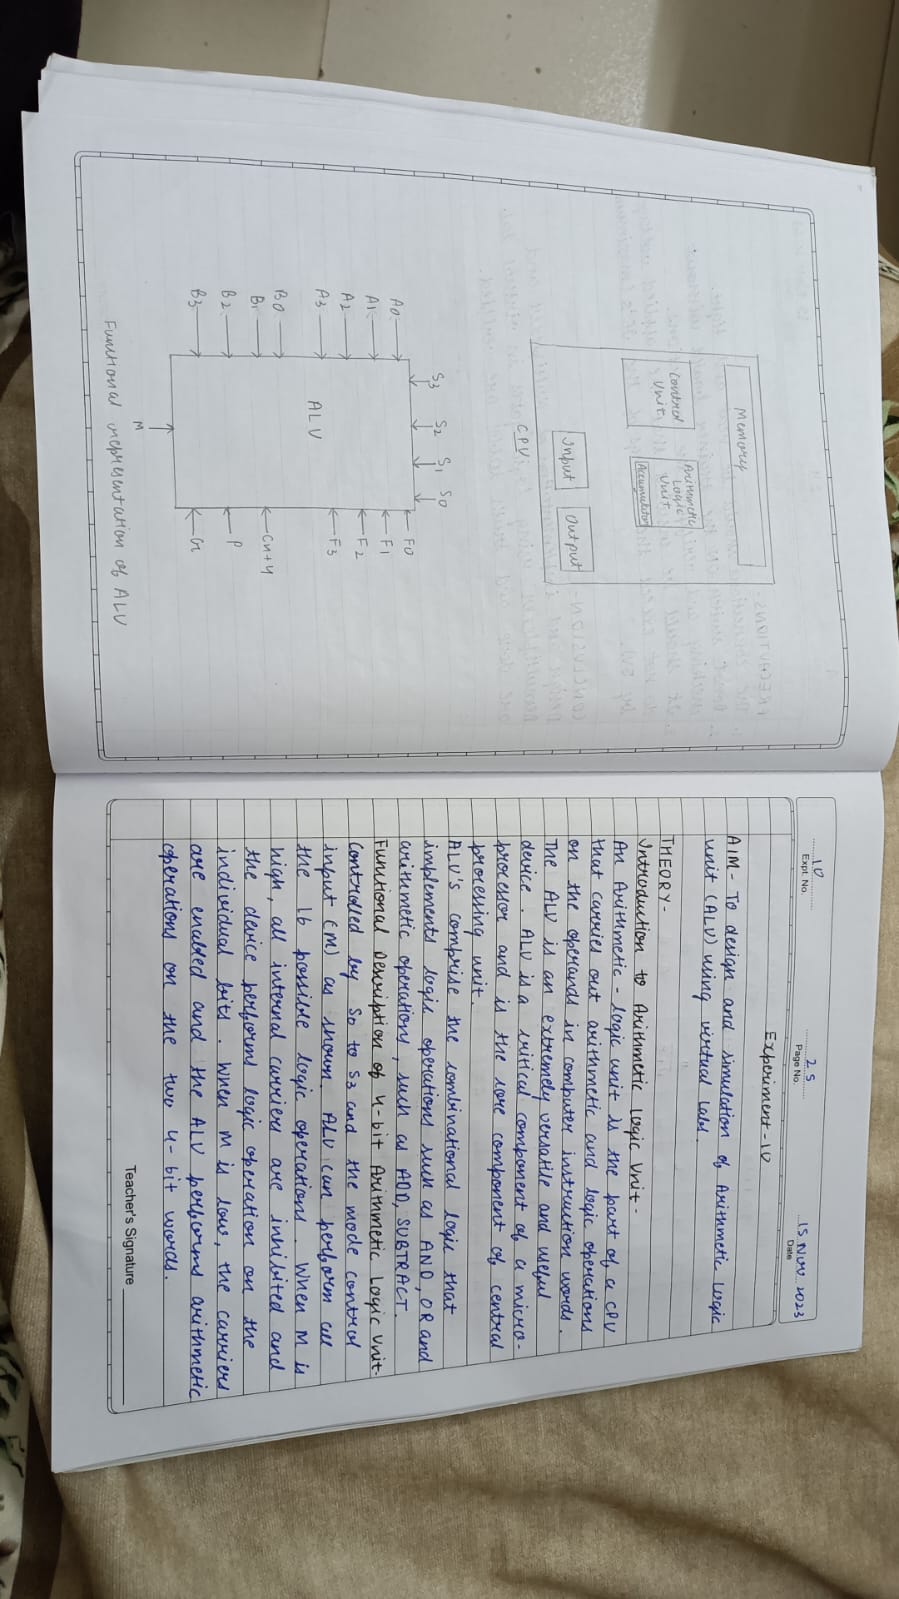 Memory
Control
Unit
Arithmetic
Logic
Unit
Accumulator
Input
Output
CPU
S3 S2 S1 S0
A0
A1
A2
A3
B0
B1
B2
B3
ALU
F0
F1
F2
F3
Cn+4
P
G
M
Functional representation of ALU
10
Expt. No.
25
Page No.
15 Nov 2023
Date
Experiment-10
AIM- To design and simulation of Arithmetic Logic
unit (ALU) using virtual Labs.
THEORY-
Introduction to Arithmetic Logic Unit-
An Arithmetic - logic unit is the part of a CPU
that carries out arithmetic and logic operations
on the operands in computer instruction words.
The ALU is an extremely versatile and useful
device. ALU is a critical component of a micro-
processor and is the core component of central
processing unit.
ALU's comprise the combinational logic that
implements logic operations such as AND, OR and
arithmetic operations, such as ADD, SUBTRACT.
Functional Description of 4-bit Arithmetic Logic Unit-
Controlled by S0 to S3 and the mode control
input (M) as shown. ALU can perform all
the 16 possible logic operations. When M is
high, all internal carriers are inhibited and
the device performs logic operation on the
individual bits. When M is low, the carriers
are enabled and the ALU performs arithmetic
operations on the two 4-bit words.
Teacher's Signature